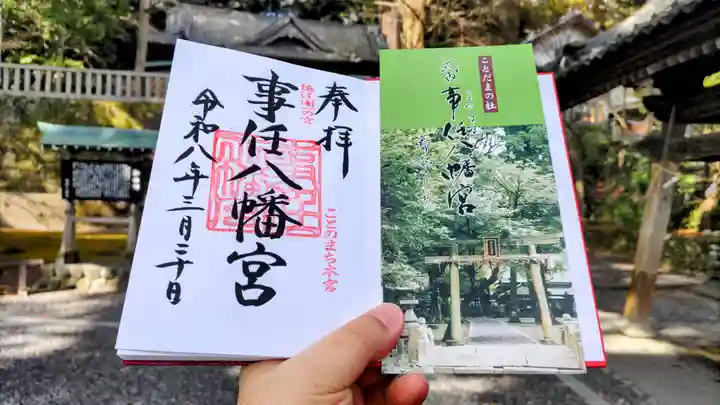 奉拝
遠江國一の宮
事任八幡宮
ことのまち本宮
令和八年三月二十日
ことだまの社
事任八幡宮